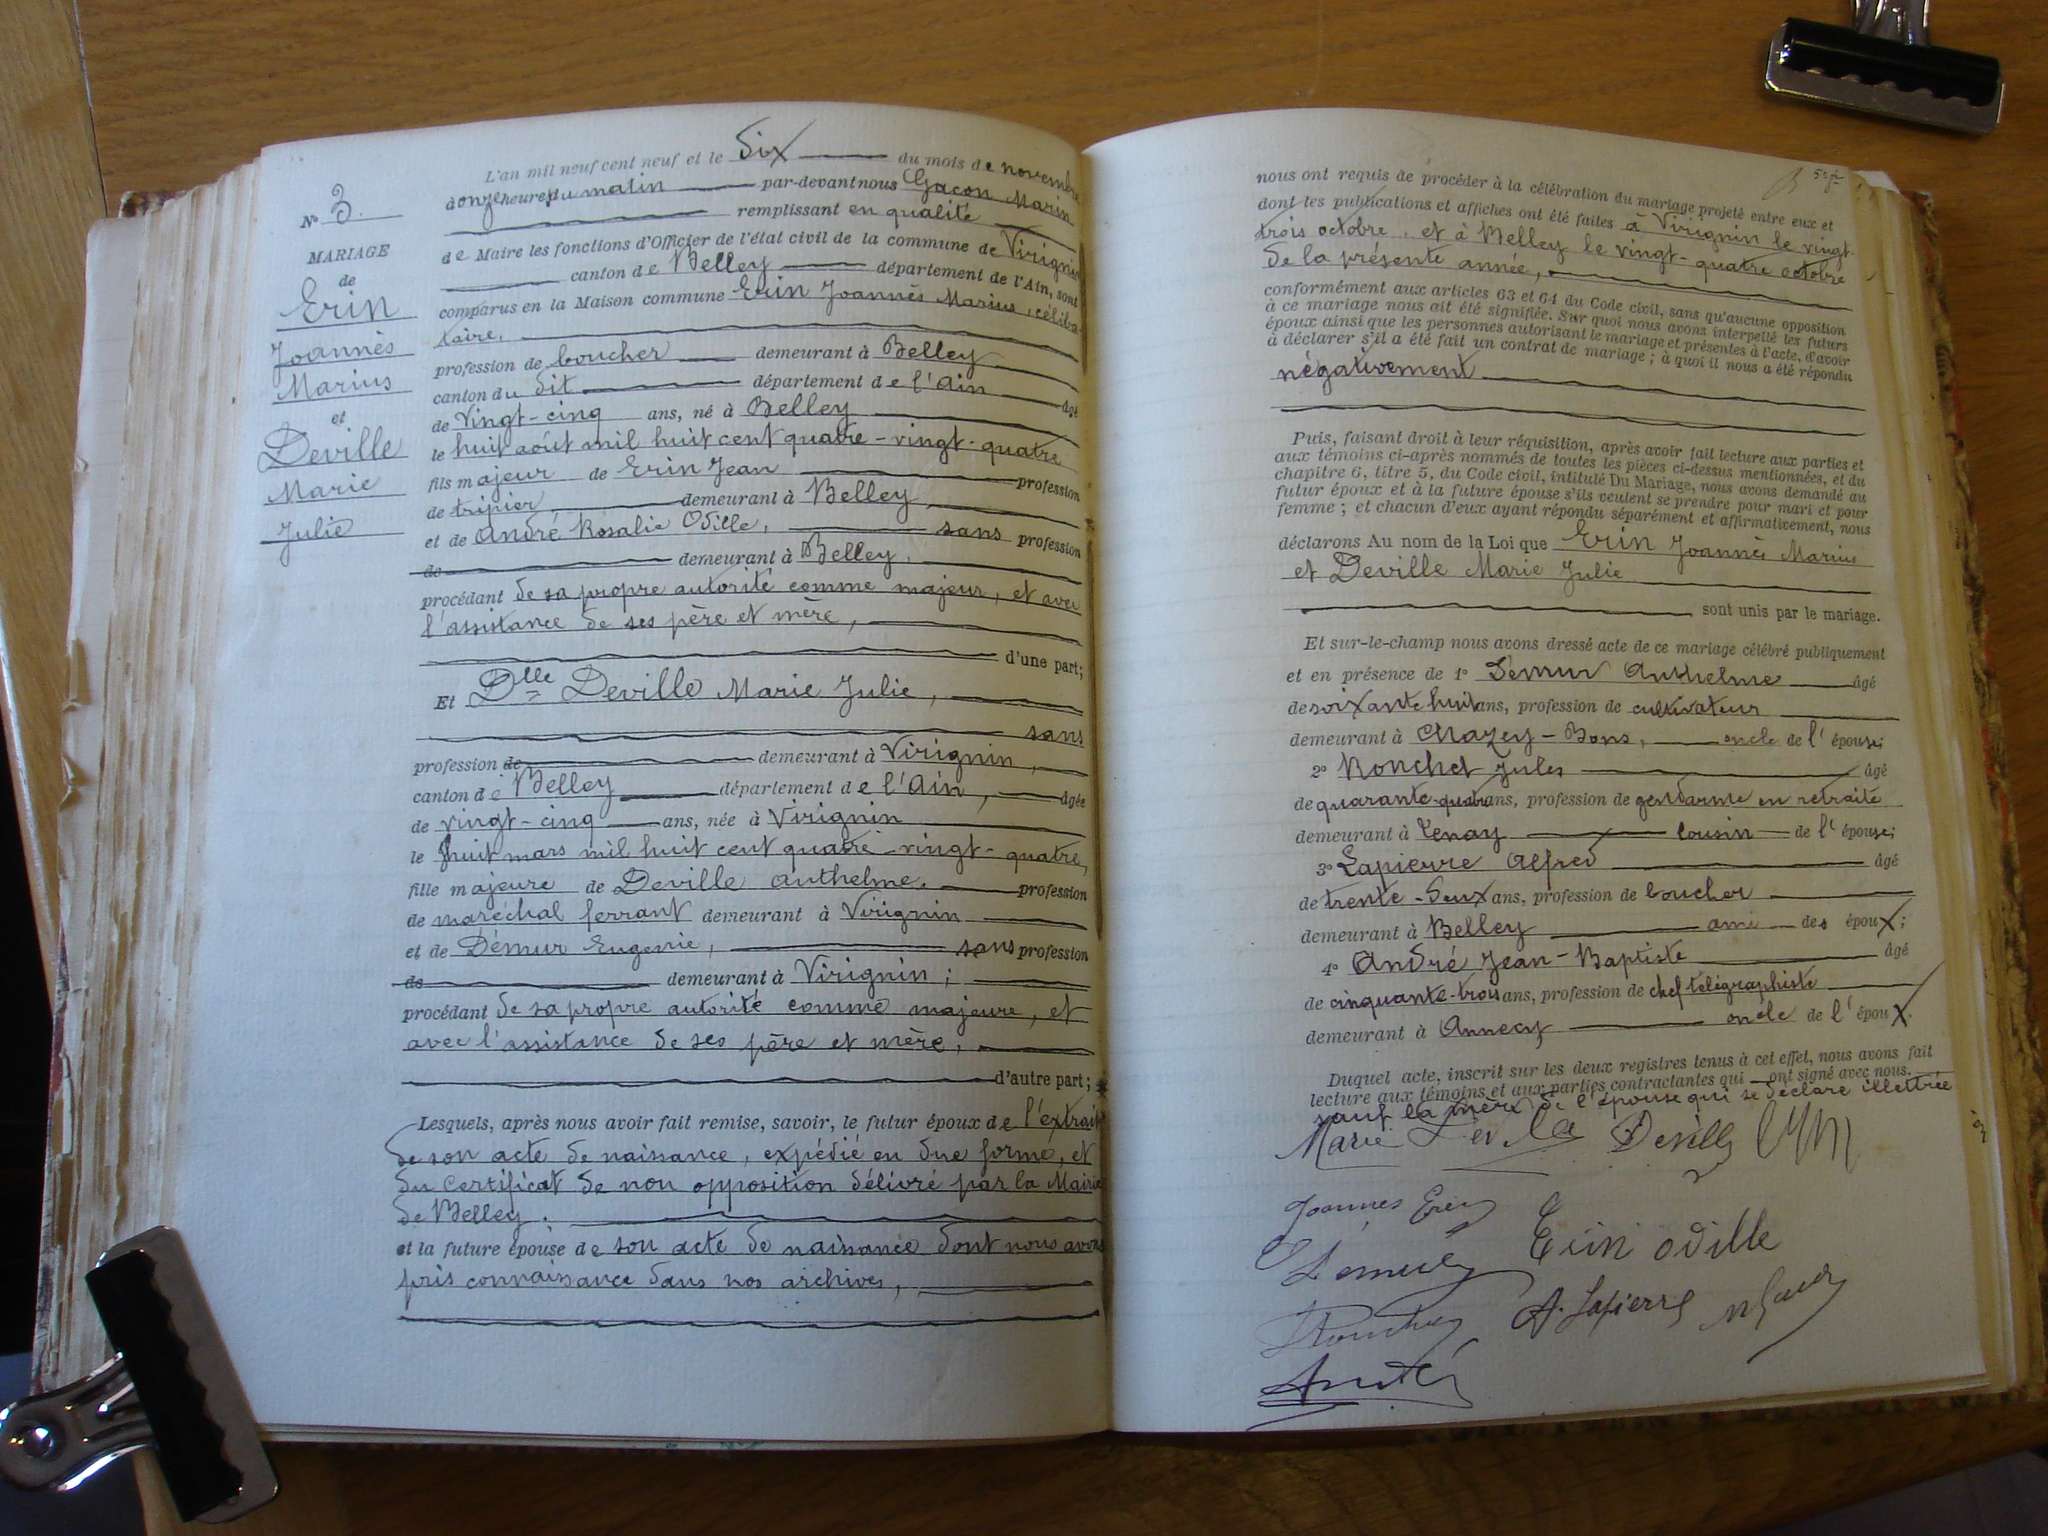 N° 3.
MARIAGE
de
Erin
Joannès
Marius
et
Deville
Marie
Julie
L'an mil neuf cent neuf et le Six du mois de novembre
à onze heures du matin par-devant nous Gacon Marin
remplissant en qualité
de Maire les fonctions d'Officier de l'état civil de la commune de Virignin
canton de Belley département de l'Ain, sont
comparus en la Maison commune Erin Joannès Marius, céliba-
taire,
profession de boucher demeurant à Belley
canton du dit département de l'Ain âgé
de Vingt-cinq ans, né à Belley
le huit août mil huit cent quatre-vingt-quatre
fils majeur de Erin Jean profession
de tripier, demeurant à Belley,
et de André Rosalie Odille, sans profession
de demeurant à Belley,
procédant de sa propre autorité comme majeur, et avec
l'assistance de ses père et mère,
d'une part;
Et Dlle Deville Marie Julie,
sans
profession de demeurant à Virignin,
canton de Belley département de l'Ain, âgée
de vingt-cinq ans, née à Virignin
le huit mars mil huit cent quatre-vingt-quatre,
fille majeure de Deville Anthelme, profession
de maréchal ferrant demeurant à Virignin
et de Démur Eugenie, sans profession
de demeurant à Virignin;
procédant de sa propre autorité comme majeure, et
avec l'assistance de ses père et mère,
d'autre part;
Lesquels, après nous avoir fait remise, savoir, le futur époux de l'extrait
de son acte de naissance, expédié en due forme, et
du certificat de non opposition délivré par la Mairie
de Belley.
et la future épouse de son acte de naissance dont nous avons
pris connaissance dans nos archives,
nous ont requis de procéder à la célébration du mariage projeté entre eux et
dont les publications et affiches ont été faites à Virignin le vingt-
trois octobre, et à Belley le vingt-quatre octobre
de la présente année,
conformément aux articles 63 et 64 du Code civil, sans qu'aucune opposition
à ce mariage nous ait été signifiée. Sur quoi nous avons interpellé les futurs
époux ainsi que les personnes autorisant le mariage et présentes à l'acte, d'avoir
à déclarer s'il a été fait un contrat de mariage; à quoi il nous a été répondu
négativement
Puis, faisant droit à leur réquisition, après avoir fait lecture aux parties et
aux témoins ci-après nommés de toutes les pièces ci-dessus mentionnées, et du
chapitre 6, titre 5, du Code civil, intitulé Du Mariage, nous avons demandé au
futur époux et à la future épouse s'ils veulent se prendre pour mari et pour
femme; et chacun d'eux ayant répondu séparément et affirmativement, nous
déclarons Au nom de la Loi que Erin Joannès Marius
et Deville Marie Julie
sont unis par le mariage.
Et sur-le-champ nous avons dressé acte de ce mariage célébré publiquement
et en présence de 1° Démur Anthelme âgé
de soixante huit ans, profession de cultivateur
demeurant à Chazey-Bons, oncle de l'épouse;
2° Ronchet Jules âgé
de quarante-quatre ans, profession de gendarme en retraite
demeurant à Tenay cousin de l'épouse;
3° Lapierre Alfred âgé
de trente-deux ans, profession de boucher
demeurant à Belley ami des époux;
4° André Jean-Baptiste âgé
de cinquante-trois ans, profession de chef télégraphiste
demeurant à Annecy oncle de l'époux.
Duquel acte, inscrit sur les deux registres tenus à cet effet, nous avons fait
lecture aux témoins et aux parties contractantes qui ont signé avec nous.
sauf la mère de l'épouse qui se déclare illettrée
Marie Deville Deville
Joannes Erin
Démur Erin Odille
Ronchet A. Lapierre
André